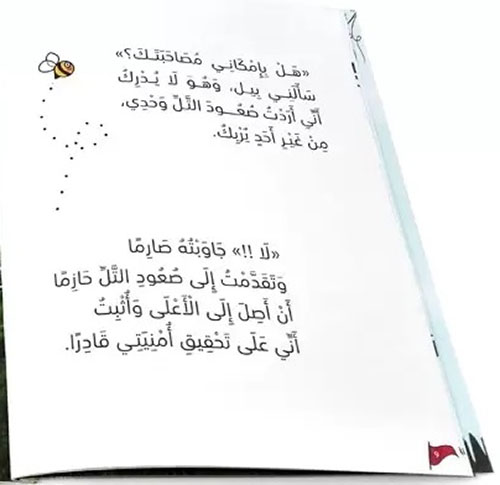 «هَلْ بِإِمْكَانِي مُصَاحَبَتَكَ؟»
سَأَلَنِي بِيل، وَهُوَ لَا يُدْرِكُ
أَنِّي أَرَدْتُ صُعُودَ التَّلِّ وَحْدِي،
مِن غَيْرِ أَحَدٍ يُرْبِكُ.
«لَا !!» جَاوَبْتُهُ صَارِمًا
وَتَقَدَّمْتُ إِلَى صُعُودِ التَّلِّ حَازِمًا
أَنْ أَصِلَ إِلَى الْأَعْلَى وَأُثْبِتُ
أَنِّي عَلَى تَحْقِيقِ أُمْنِيَتِي قَادِرًا.